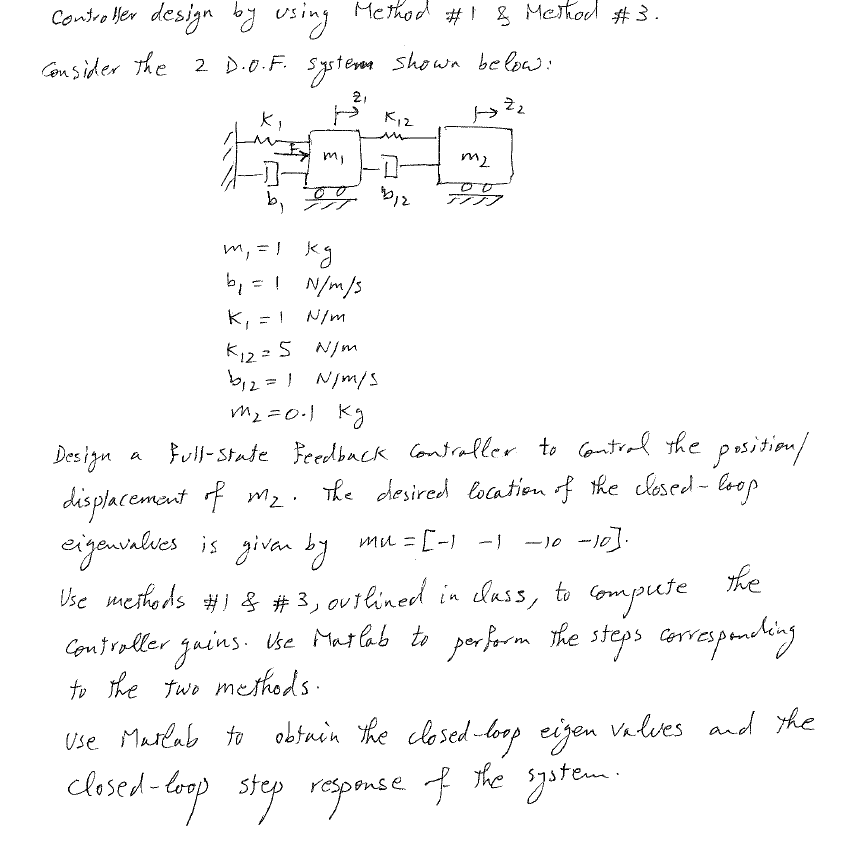 Controller design by using Method #1 & Method #3.
Consider the 2 D.O.F. system shown below:
z1 z2
K1 K12
F m1 m2
b1 b12
m1 = 1 kg
b1 = 1 N/m/s
K1 = 1 N/m
K12 = 5 N/m
b12 = 1 N/m/s
m2 = 0.1 kg
Design a Full-state Feedback Controller to control the position/
displacement of m2. The desired location of the closed-loop
eigenvalues is given by mu = [-1 -1 -10 -10].
Use methods #1 & #3, outlined in class, to compute the
controller gains. Use Matlab to perform the steps corresponding
to the two methods.
Use Matlab to obtain the closed-loop eigen values and the
closed-loop step response of the system.